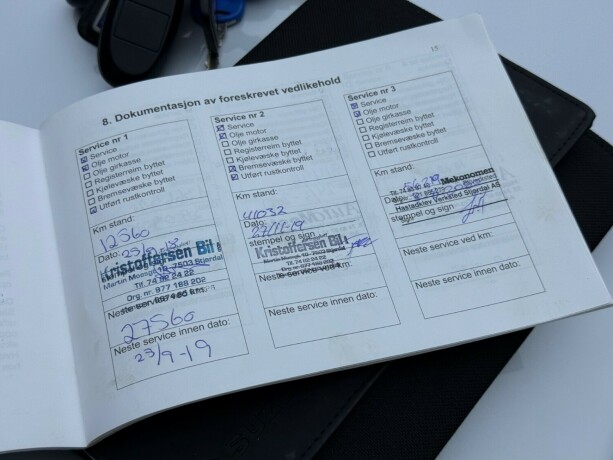 15
8. Dokumentasjon av foreskrevet vedlikehold
Service nr 1
Service
Olje motor
Olje girkasse
Registerreim byttet
Kjølevæske byttet
Bremsevæske byttet
Utført rustkontroll
Km stand:
12560
Dato: 23/9-18
Kristoffersen Bil
Martin Moesgt. 7503 Stjørdal
Tlf. 74 82 24 22
Org. nr. 977 188 202
Neste service ved km:
27560
Neste service innen dato:
23/9-19
Service nr 2
Service
Olje motor
Olje girkasse
Registerreim byttet
Kjølevæske byttet
Bremsevæske byttet
Utført rustkontroll
Km stand:
41032
Dato:
27/11-19
stempel og sign
Kristoffersen Bil
Tlf. 74 82 24 22
Org. nr. 977 188 202
Neste service ved km:
Neste service innen dato:
Service nr 3
Service
Olje motor
Olje girkasse
Registerreim byttet
Kjølevæske byttet
Bremsevæske byttet
Utført rustkontroll
Km stand:
Mekonomen
Dato
Hastadklev Verksted Stjørdal AS
stempel og sign
Neste service ved km:
Neste service innen dato: